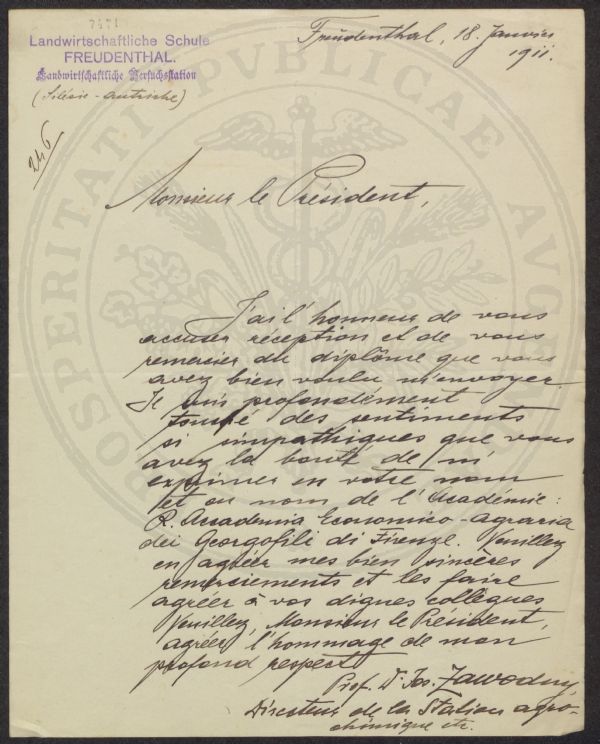 7571
Landwirtschaftliche Schule
FREUDENTHAL.
Landwirtschaftliche Versuchsstation
(Silésie - autriche)
246
Freudenthal, 18. Janvier
1911.
Monsieur le Président,
J'ai l'honneur de vous
accuser réception et de vous
remercier du diplôme que vous
avez bien voulu m'envoyer.
Je suis profondément
touché des sentiments
si simpathiques que vous
avez la bonté de m'
exprimer en votre nom
et au nom de l'Académie:
R. Accademia Economico-agraria
dei Georgofili di Firenze. Veuillez
en agréer mes bien sincères
remerciements et les faire
agréer à vos dignes collègues
Veuillez, Monsieur le Président,
agréer l'hommage de mon
profond respect
Prof. Dr. Jos. Zawodny,
Directeur de la Station agro-
chimique etc.
PROSPERITATI PVBLICAE AVGENDAE